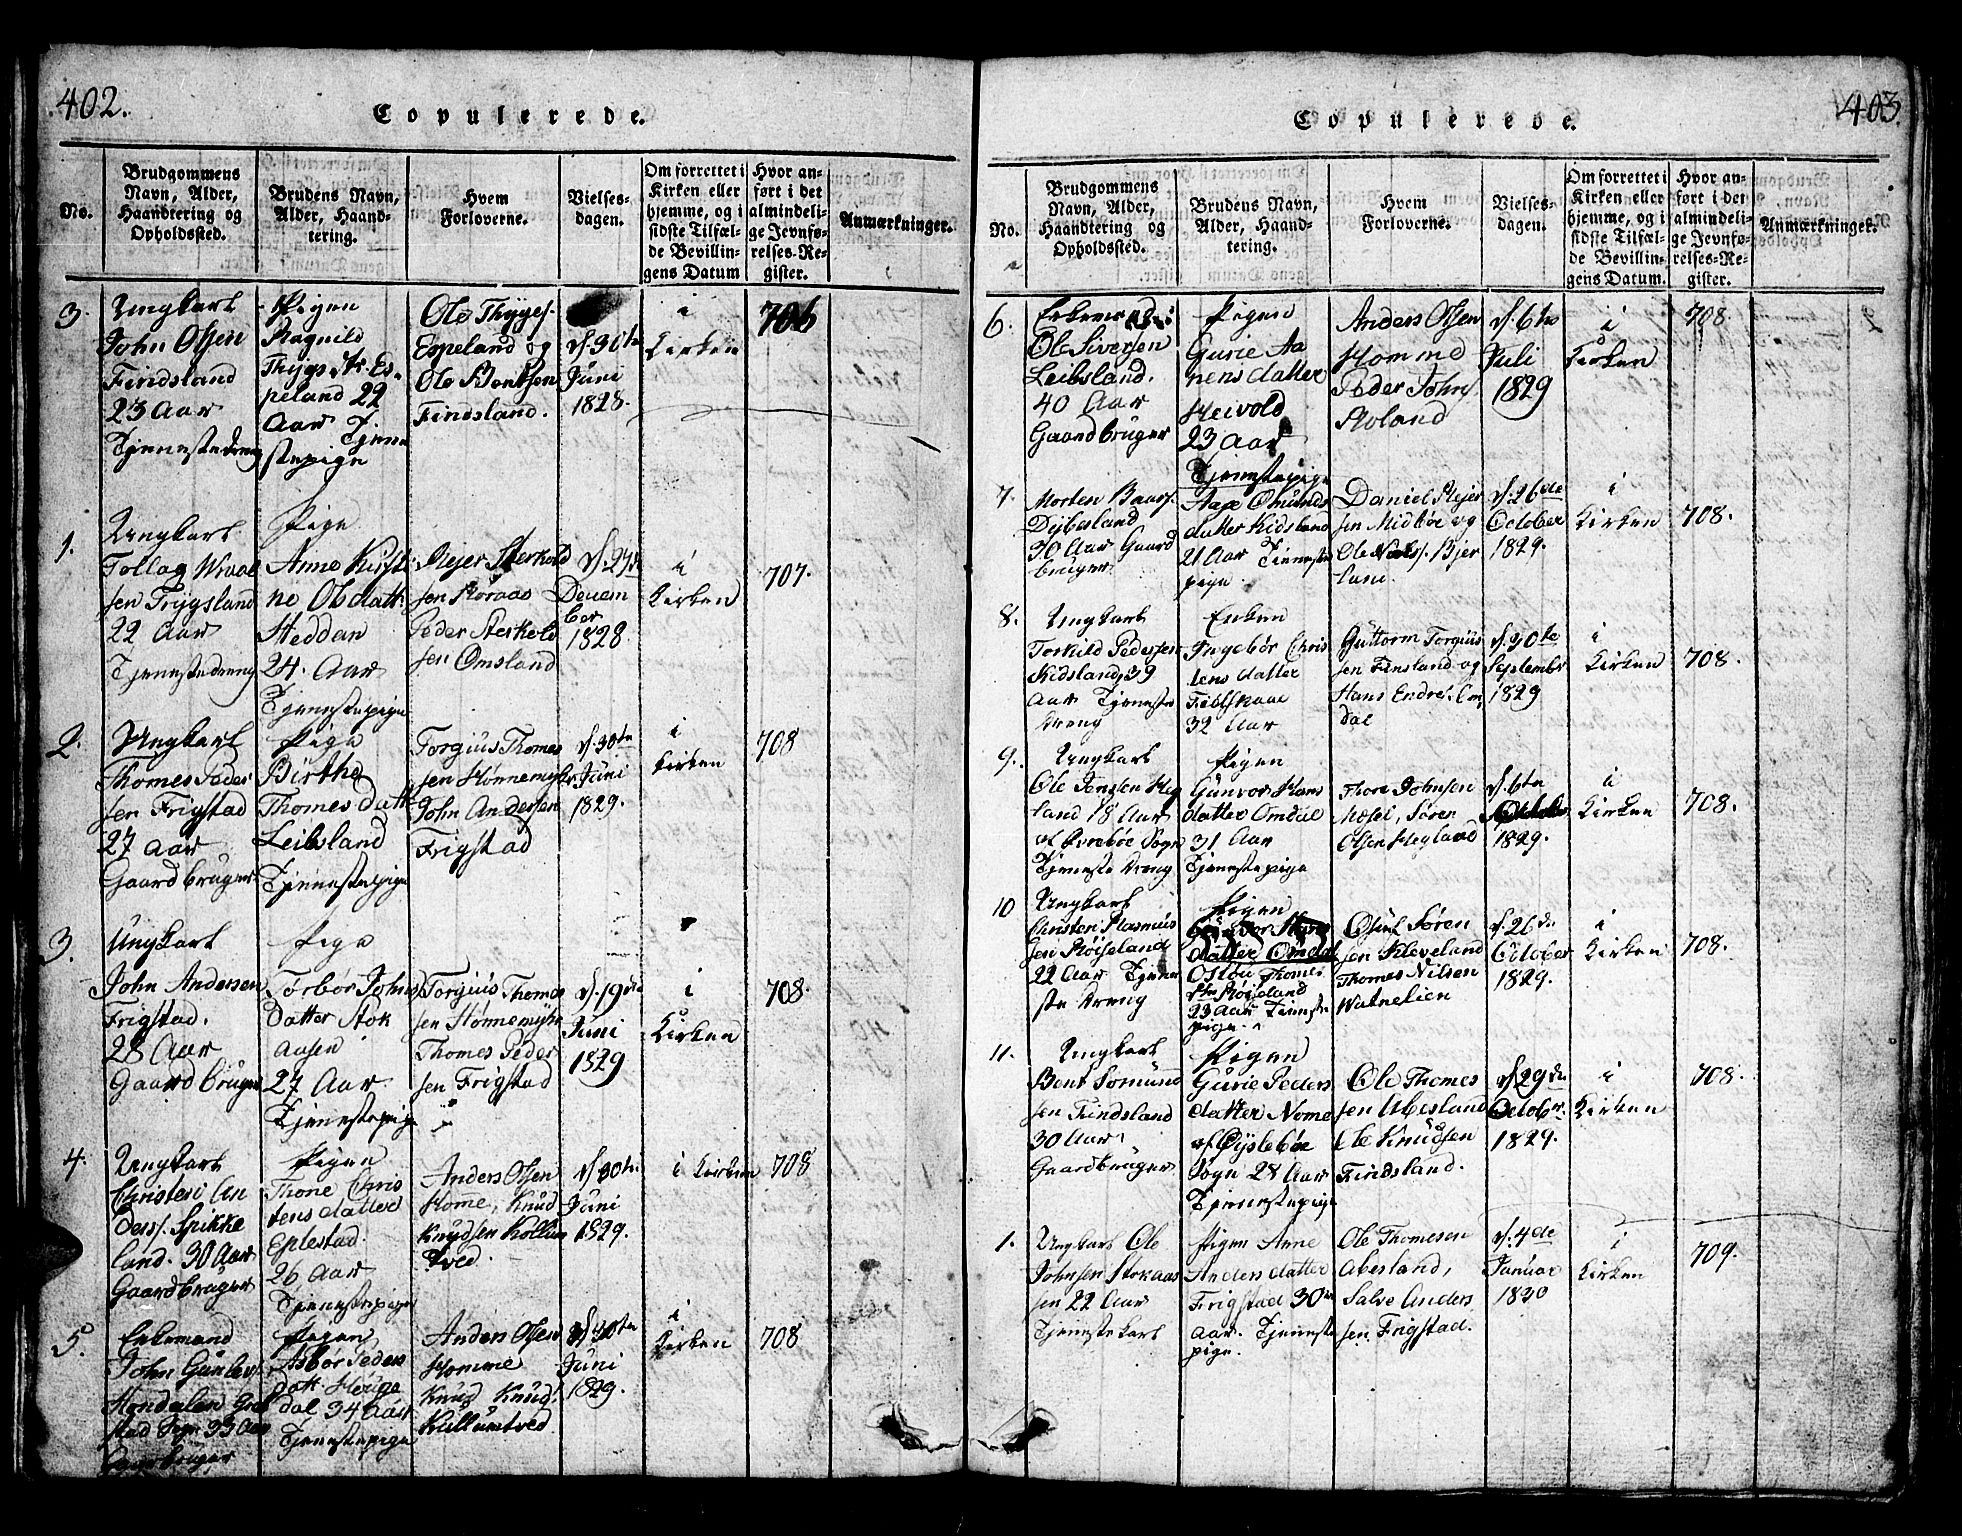 402.
Copulerede.
No.
Brudgommens
Navn, Alder,
Haandtering og
Opholdssted.
Brudens Navn,
Alder, Haand-
tering.
Hvem
Forloverne.
Vielses-
dagen.
Om forrettet i
Kirken eller
hjemme, og i
sidste Tilfæl-
de Bevillin-
gens Datum
Hvor an-
ført i det
almindeli-
ge Jevnfø-
relses-Re-
gister.
Anmærkninger.
3.
Ungkarl
John Olsen
Findsland
23 Aar
Tjenestedreng
Pigen
Ragnild
Thygs dtr Es-
peland 22
Aar Tjene
stepige
Ole Thyges.
Espeland og
Ole Bentsen
Findsland.
d. 30te
Juni
1828.
i
Kirken
706
1.
Ungkarl
Tollag
sen Trygsland
22 Aar
Tjenestedreng
Pige
Anne Kirsti
ne Olsdatt.
Heddan
24. Aar
Tjenestepige
Rejer Sterkold
sen Røraas
Peder Sterkold
sen Omsland
d. 27de
Decem
ber
1828
i
Kirken
707.
2.
Ungkarl
Thomes Peder
sen Frigstad
27 Aar
Gaardbruger
Pige
Birthe
Thomes Datt.
Leibsland
Tjenestepige
Torgius Thomes
sen Hønnemyhr
John Andersen
Frigstad
d. 30te
Juni
1829.
i
Kirken
708
3.
Ungkarl
John Andersen
Frigstad.
28 Aar
Gaardbruger
Pige
Torbør Johns
Datter Stok
aasen
27 Aar
Tjenestepige
Torgius Thomes
sen Hønnemyhr
Thomes Peder
sen Frigstad
d. 19de
Juni
1829
i
Kirken
708.
4.
Ungkarl
Christen An
derss. Spikke
land. 30 Aar
Gaardbruger
Pigen
Thone Chris
tensdatter
Eplestad.
26 Aar
Tjenestepige
Anders Olsen
Homme, Knud
Knudsen Kollun
tved.
d. 30te
Juni
1829.
i Kirken
708
5.
Enkemand
John Gunlevs.
Hondalen
stad Sogn 33 Aar
Gaardbruger
Pigen
Asbør Peders
datt Houge
dal 34 Aar
Tjenestepige
Anders Olsen
Homme
Knud Knuds.
Kulluntved
d. 30te
Juni
1829.
i
Kirken
708
403.
Copulerede.
No.
Brudgommens
Navn, Alder,
Haandtering og
Opholdssted.
Brudens Navn,
Alder, Haand-
tering.
Hvem
Forloverne.
Vielses-
dagen.
Om forrettet i
Kirken eller
hjemme, og i
sidste Tilfæl-
de Bevillin-
gens Datum.
Hvor an-
ført i det
almindeli-
ge Jevnfø-
relses-Re-
gister.
Anmærkninger.
6.
Ole Siversen
Leibsland.
40 Aar
Gaardbruger
Pigen
Gurie Aa
nensdatter
Heivold
23 Aar
Tjenestepige
Anders Olsen
Homme
Peder Johns.
Skoland
d. 6te
Juli
1829
i
Kirken
708
7.
Morten Baars.
Dybesland
30 Aar Gaard
bruger
Aase Omunds
datter Kidsland
21 Aar Tjeneste
pige
Daniel Rejer
sen Midbøe og
Ole Nels. Bjer
land.
d. 26de
October
1829.
i
Kirken
708.
8.
Ungkarl
Torkild Pedersen
Kidsland 39
Aar Tjeneste
dreng
Enken
Ingebør Chris
tensdatter
Fidskaae
32 Aar
Guttorm Torgius
sen Finsland og
Hans Endres. Om
dal
d. 30te
September
1829
i
Kirken
708.
9.
Ungkarl
Ole Jensen Heg
land 18 Aar
af Øvrebøe Sogn
Tjenestedreng
Pigen
Gunvor Hans
datter Omdal
31 Aar
Tjenestepige
Thore Johnsen
Mosel, Søren
Olsen Hegland
d. 6te
October
1829.
i
Kirken
708.
10
Ungkarl
Christen Rasmus
sen Røiseland
22 Aar Tjene
ste dreng
Pigen
datter Omdal
Thomes
dtr Røiseland
23 Aar Tjeneste
pige.
Oluf Søren
sen Kleveland
Thomes Nilsen
Watnelien
d. 26de
October
1829.
i
Kirken
708.
11.
Ungkarl
Bent Somund
sen Findsland
30 Aar
Gaardbruger
Pigen
Gurie Peders
datter Nome
af Øyslebøe
Sogn 28 Aar
Tjenestepige
Ole Thomes
sen Ubesland
Ole Knudsen
Findsland.
d. 29de
October.
1829.
i
Kirken
708.
1.
Ungkarl Ole
Johnsen Stokaas
sen 22 Aar
Tjenestekarl
Pigen Anne
Andersdatter
Frigstad 30
aar. Tjeneste
pige.
Ole Thomesen
Abesland,
Salve Anders
sen Frigstad.
d. 4de
Januar
1830
i
Kirken
709.